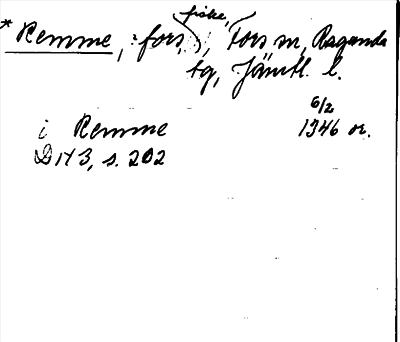 *Remme, fors, fiske, Fors sn, Ragunda
tg, Jämtl. l.
i Remme 6/2 1346 or.
DN 3, s. 202